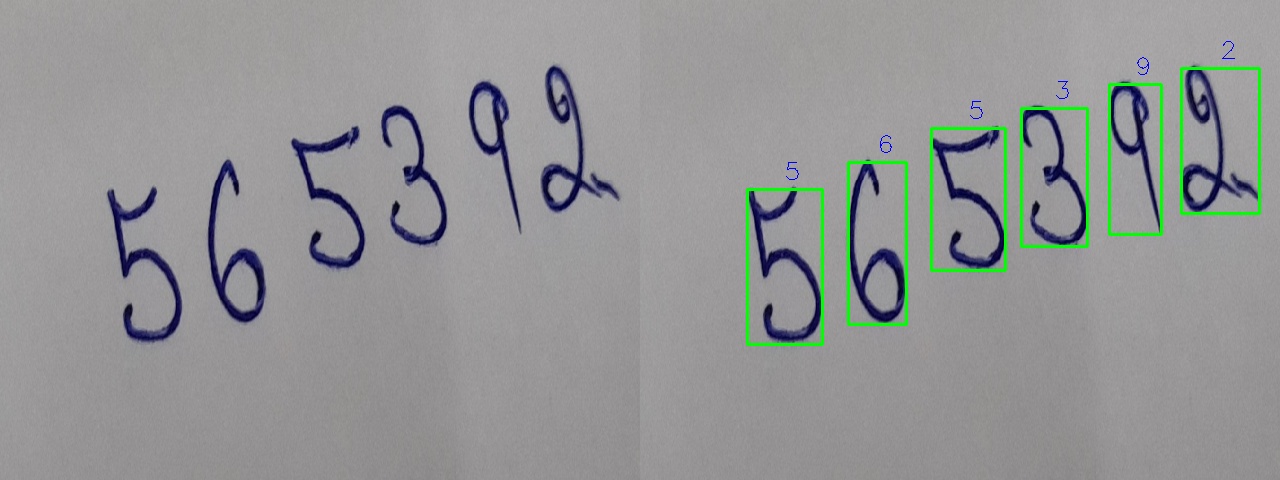 565392
565392
5 6 5 3 9 2